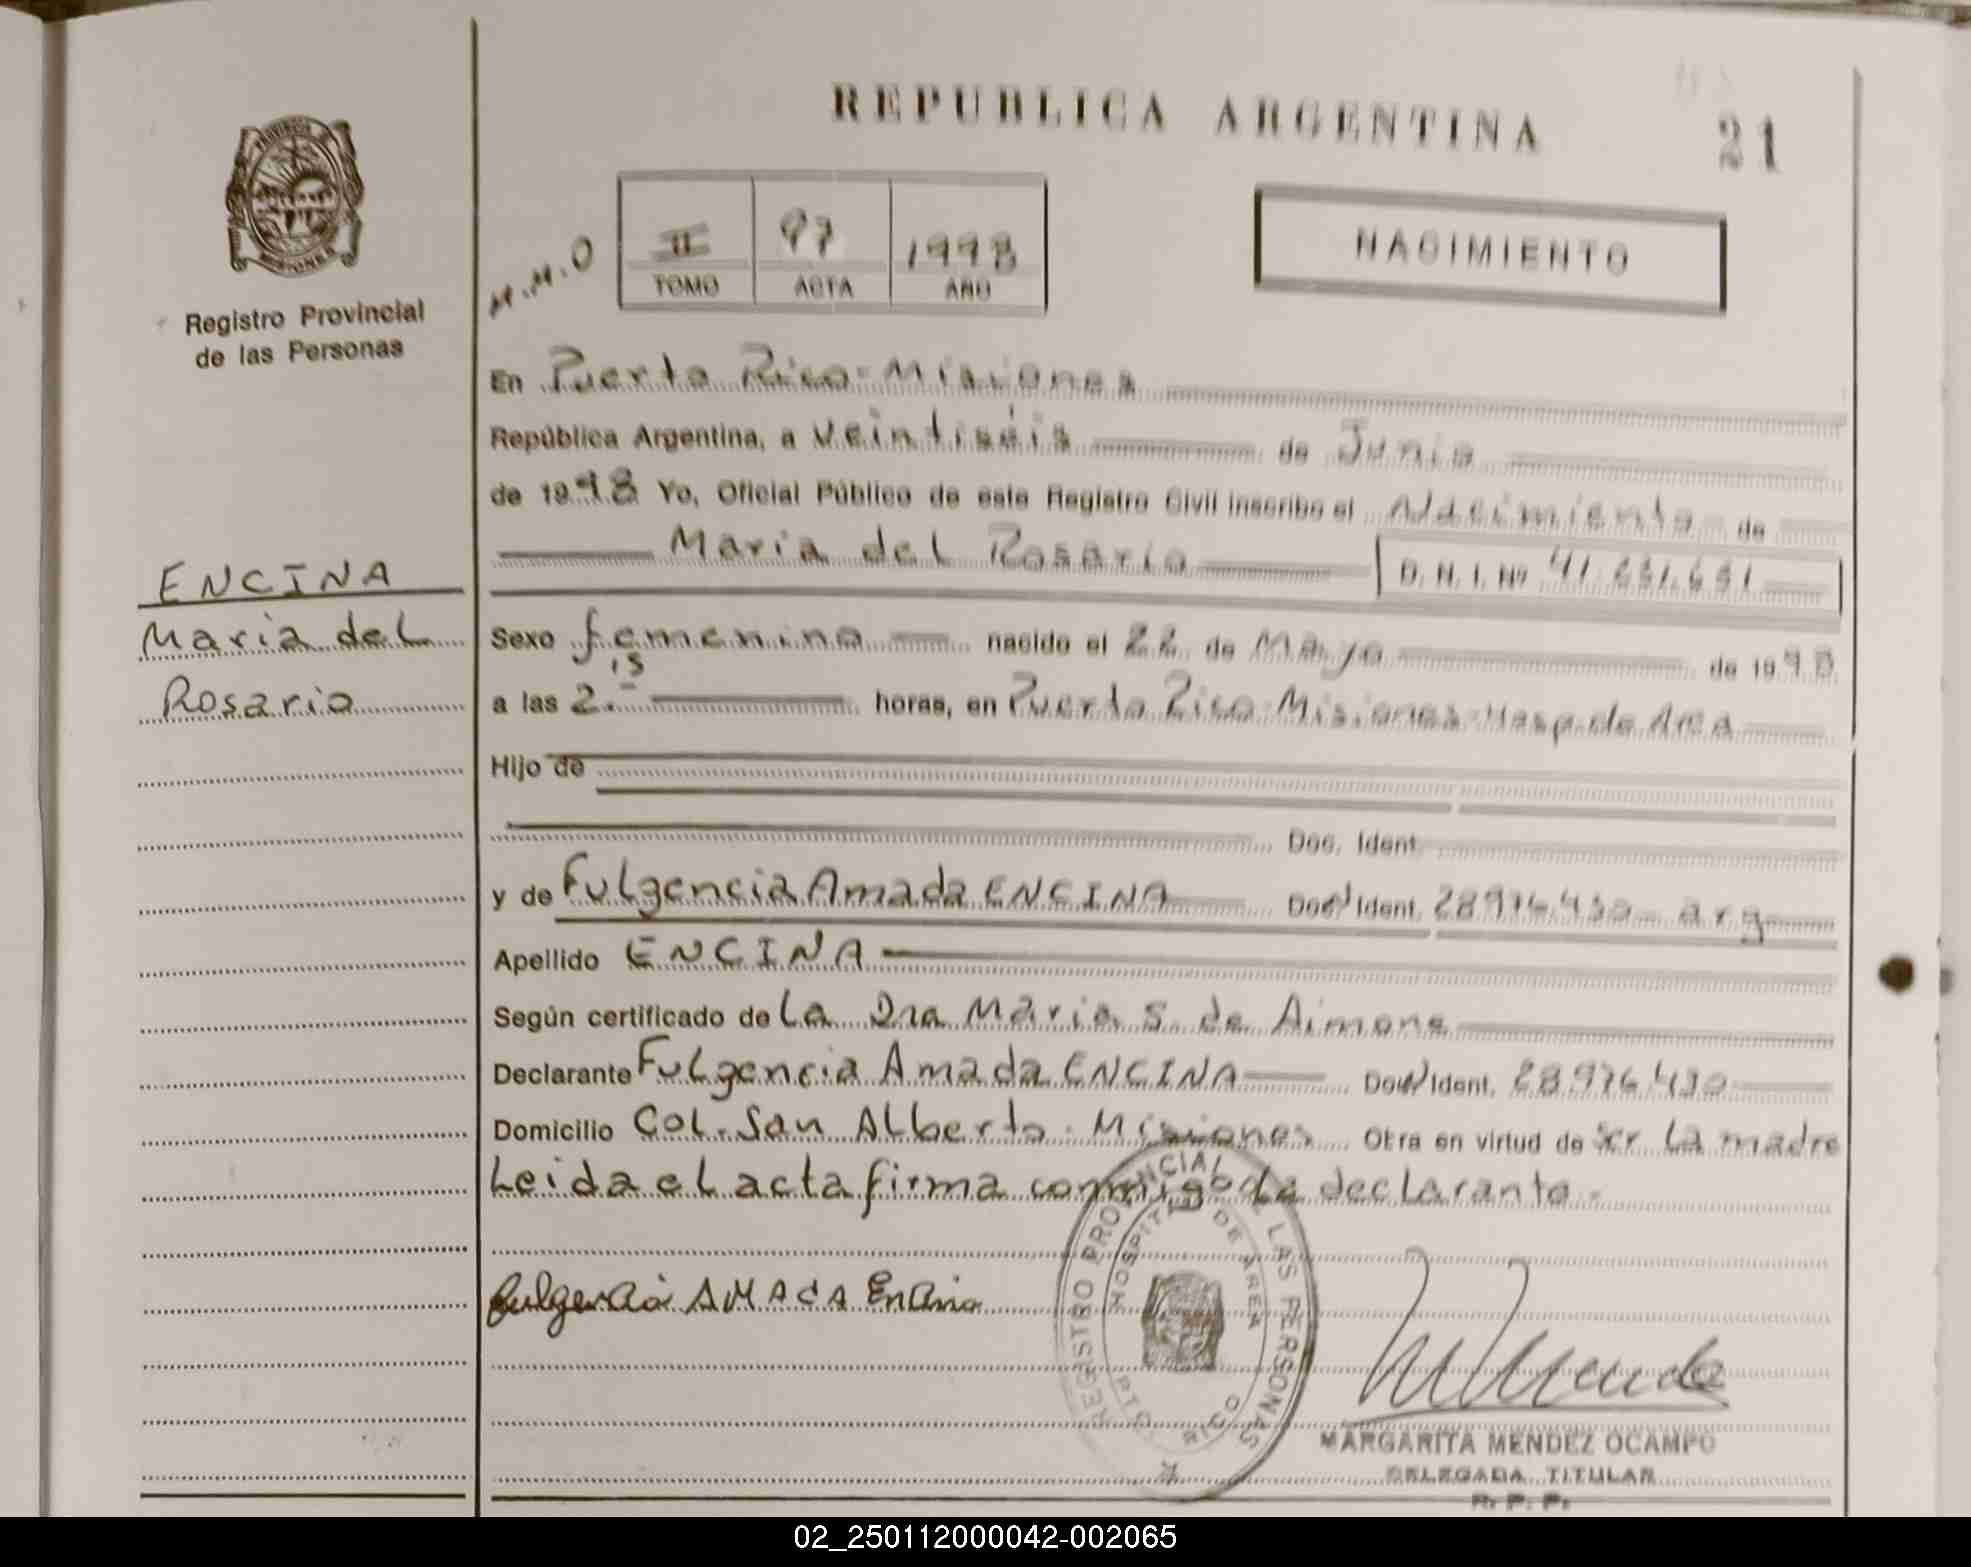 REPUBLICA ARGENTINA
21
PROVINCIA DE MISIONES
Registro Provincial
de las Personas
M.M.O
II 97 1998
TOMO ACTA AÑO
NACIMIENTO
En Puerto Rico-Misiones
República Argentina, a veintiséis de Junio
de 1998 Yo, Oficial Público de este Registro Civil inscribo el Nacimiento de
Maria del Rosario D. N. I. Nº
ENCINA
Maria del
Rosario
Sexo femenino nacido el 22 de Mayo de 1998
a las 2.15 horas, en Puerto Rico-Misiones-Hosp de Area
Hijo de
Doc. Ident.
y de Fulgencia Amada ENCINA Doc Ident. arg
Apellido ENCINA
Según certificado de La Dra Maria S de Aimone
Declarante Fulgencia Amada ENCINA Doc Ident.
Domicilio Col. San Alberto-Misiones Obra en virtud de ser La madre
Leida el acta firma conmigo la declarante.
Fulgencia AMADA Encina
REGISTRO PROVINCIAL DE LAS PERSONAS
HOSPITAL DE AREA
PTO. RICO
MARGARITA MENDEZ OCAMPO
DELEGADA TITULAR
R. P. P.
02_250112000042-002065